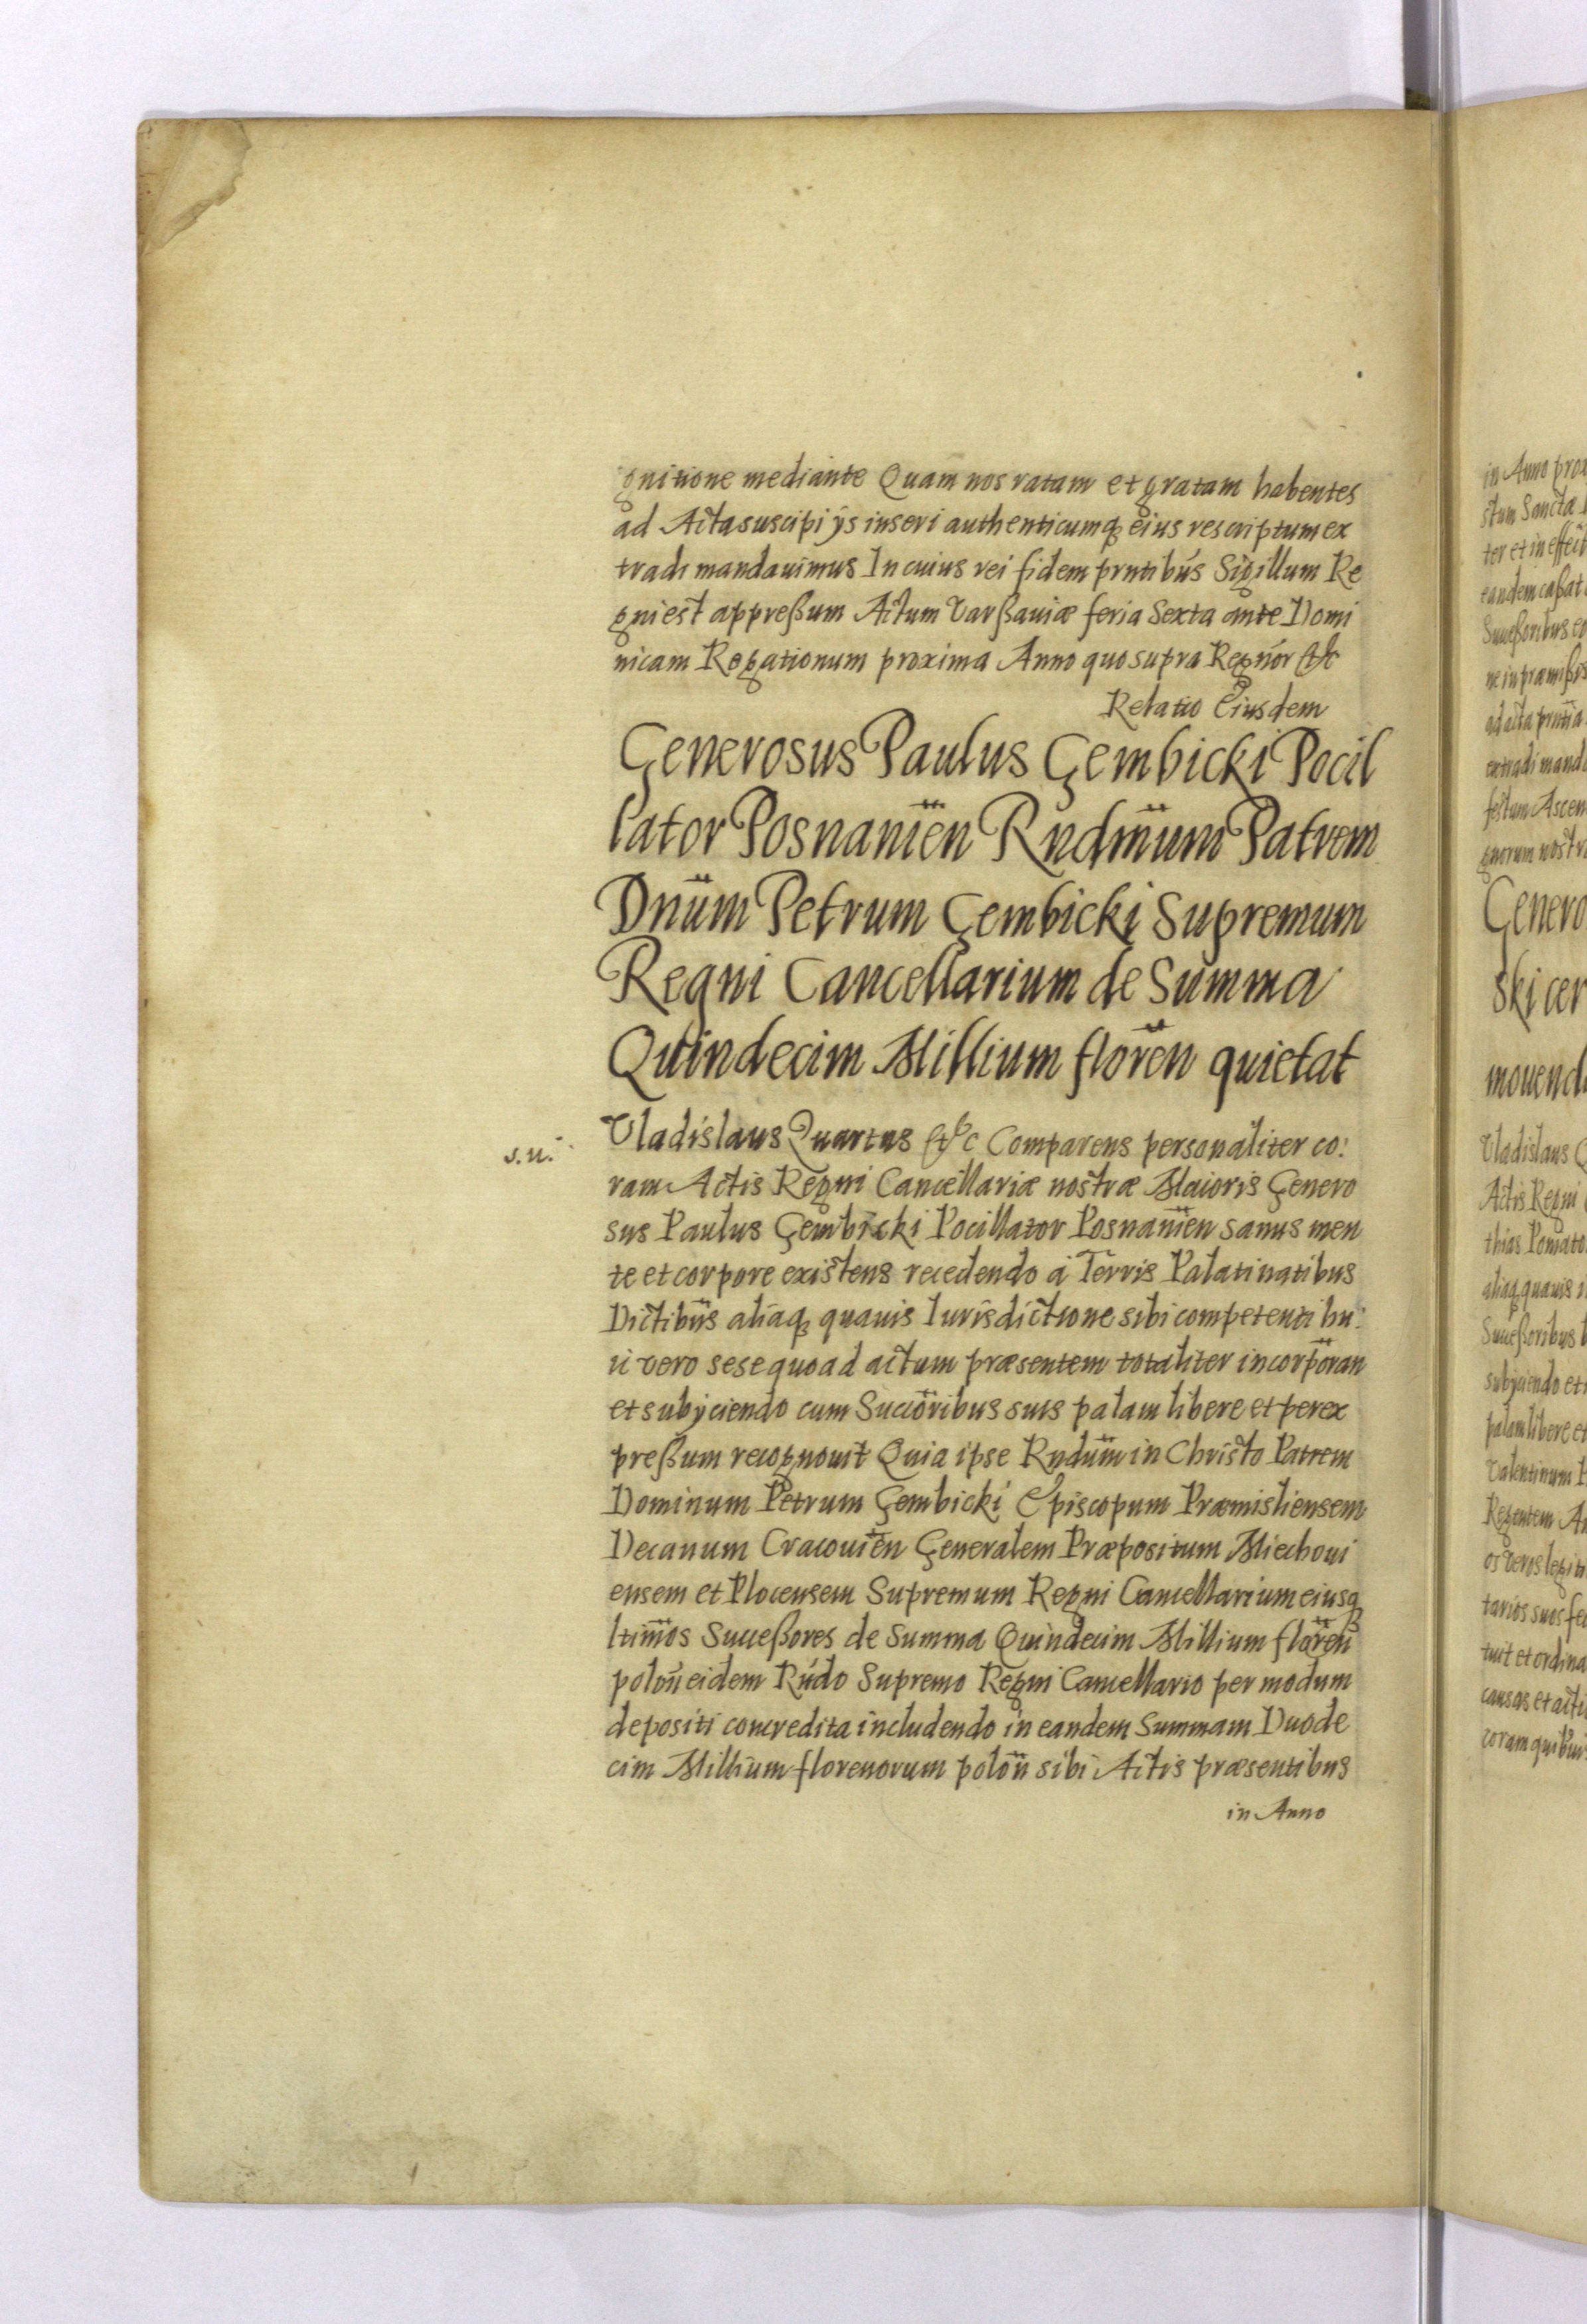 gnitione mediante Quam nos ratam et gratam habentes
ad Acta suscipi ijs inseri authenticumq eius rescriptum ex
tradi mandauimus In cuius rei fidem prntibus Sigillum Re
gni est appreßum Actum Varßauiæ feria Sexta ante Domi
nicam Rogationum proxima Anno quo supra Regnor etc
Relatio Eiusdem
Generosus Paulus Gembicki Pocil
lator Posnanien Rndmum Patrem
Dnum Petrum Gembicki Supremum
Regni Cancellarium de Summa
Quindecim Millium floren quietat
Vladislaus Quartus etc Comparens personaliter co:
s.n.
ram Actis Regni Cancellariæ nostræ Maioris Genero
sus Paulus Gembicki Pocillator Posnanien sanus men
te et corpore existens recedendo a Terris Palatinatibus
Dictibus aliaq quauis Iurisdictione sibi competenti hu:
ic vero sese quoad actum præsentem totaliter incorporan
et subijciendo cum Succoribus suis palam libere et per ex
preßum recognouit Quia ipse Rndum in Christo Patrem
Dominum Petrum Gembicki Episcopum Præmisliensem
Decanum Cracouien Generalem Præpositum Miechoui
ensem et Plocensem Supremum Regni Cancellarium eiusq
ltimos Succeßores de Summa Quindecim Millium floren
polon eidem Rndo Supremo Regni Cancellario per modum
depositi concredita includendo in eandem Summam Duode
cim Millium florenorum polon sibi Actis præsentibus
in Anno
in Anno
stum Sancta
ter et in effect
eandem caßat
Succeßoribus
ne in præmißis
ad acta prntia
extradi mand
festum Ascen
gnorum nostr
Genero
ski cer
mouend
Vladislaus Q
Actis Regni
thias Poniato
aliaq quauis
Succeßoribus
subijciendo et
palam libere et
Valentinum
Regentem
os veros legiti
tarios suos fec
tuit et ordina
causas et acti
coram quibus